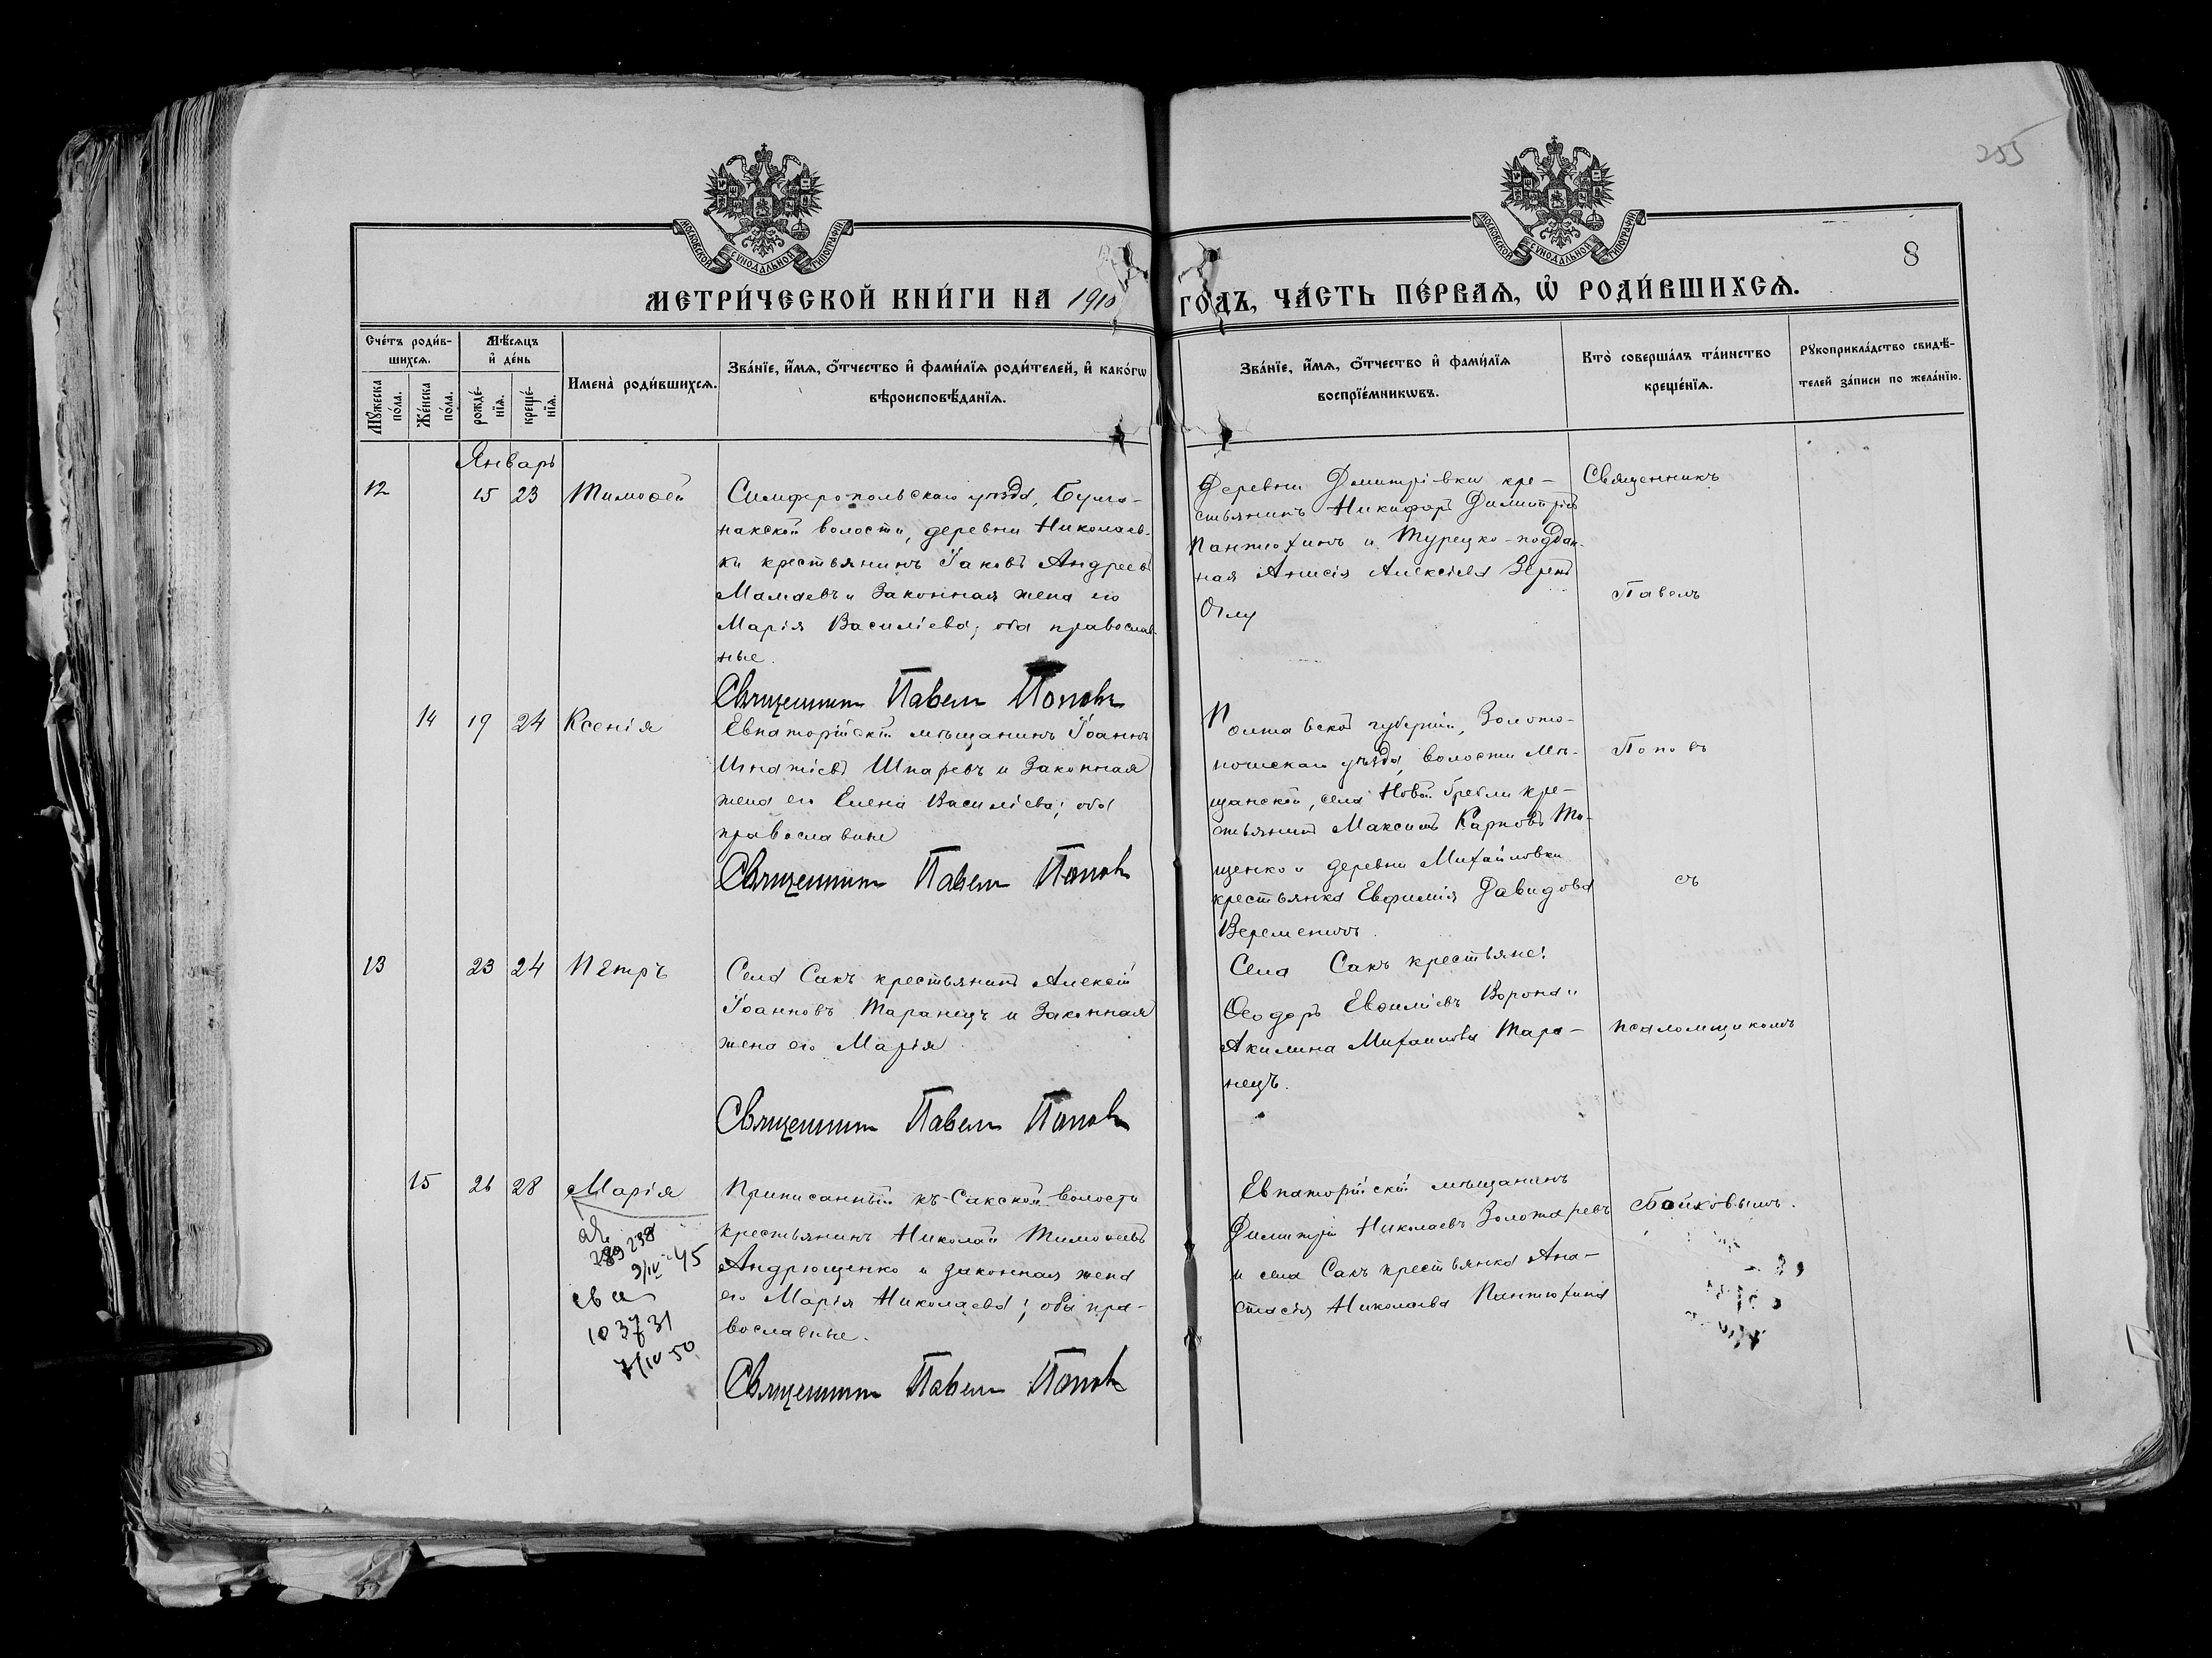 255
МОСКОВСКОЙ СѴНОДАЛЬНОЙ ТИПОГРАФІИ
МОСКОВСКОЙ СѴНОДАЛЬНОЙ ТИПОГРАФІИ
8
МЕТРИ́ЧЕСКОЙ КНИ́ГИ НА 1910 ГО́ДЪ, ЧА́СТЬ ПЕ́РВАѦ, Ѡ҆ РОДИ́ВШИХСѦ.
Сче́тъ роди́в-
шихсѧ.
Мꙋ́жеска по́ла.
Же́нска по́ла.
Мѣ́сѧцъ
и҆ де́нь
рожде́-
нїѧ.
креще́-
нїѧ.
Имена̀ роди́вшихсѧ.
Зва́нїе, и҆́мѧ, ѻ҆́тчество и҆ фами́лїѧ роди́телей, и҆ како́гѡ
вѣроисповѣ́данїѧ.
Зва́нїе, и҆́мѧ, ѻ҆́тчество и҆ фами́лїѧ
воспрїе́мникѡвъ.
Кто̀ соверша́лъ та́инство
креще́нїѧ.
Рꙋкоприкла́дство свидѣ́-
телей за́писи по жела́нїю.
Январь
12 15 23 Тимоѳей
Симферопольскаго уѣзда, Булга-
накской волости, деревни Николаев-
ки крестьянинъ Іаковъ Андреевъ
Мамаевъ и законная жена его
Марія Василіева, оба православ-
ные.
Священникъ Павелъ Поповъ
Деревни Димитріевки кре-
стьянинъ Никифоръ Димитріевъ
Пантюхинъ и Турецко-поддан-
ная Анисія Алексіева
Оглу
Священникъ
Павелъ
14 19 24 Ксенія
Евпаторійскій мѣщанинъ Іоаннъ
Игнатіевъ Шпаревъ и законная
жена его Елена Василіева; оба
православные
Священникъ Павелъ Поповъ
Полтавской губерніи, Золото-
ношскаго уѣзда, волости Мѣ-
щанской, села Новой Гребли кре-
стьянинъ Максимъ Карповъ
щенко и деревни Михайловки
крестьянка Евфимія Давидова
Поповъ
съ
13 23 24 Петръ
Села Сакъ крестьянинъ Алексій
Іоанновъ Таранецъ и законная
жена его Марія
Священникъ Павелъ Поповъ
Села Сакъ крестьяне:
Ѳеодоръ Евѳиміевъ Ворона и
Акилина Михаилова Тара-
нецъ.
псаломщикомъ
15 26 28 Марія
289238
9/IV-45
св
103731
7/IV 50
Приписанный къ Сакской волости
крестьянинъ Николай Тимоѳеевъ
Андрющенко и законная жена
его Марія Николаева; оба пра-
вославные.
Священникъ Павелъ Поповъ
Евпаторійскій мѣщанинъ
Димитрій Николаевъ Золотаревъ
и села Сакъ крестьянка Ана-
стасія Николаева Пантюхина
Бойковымъ.